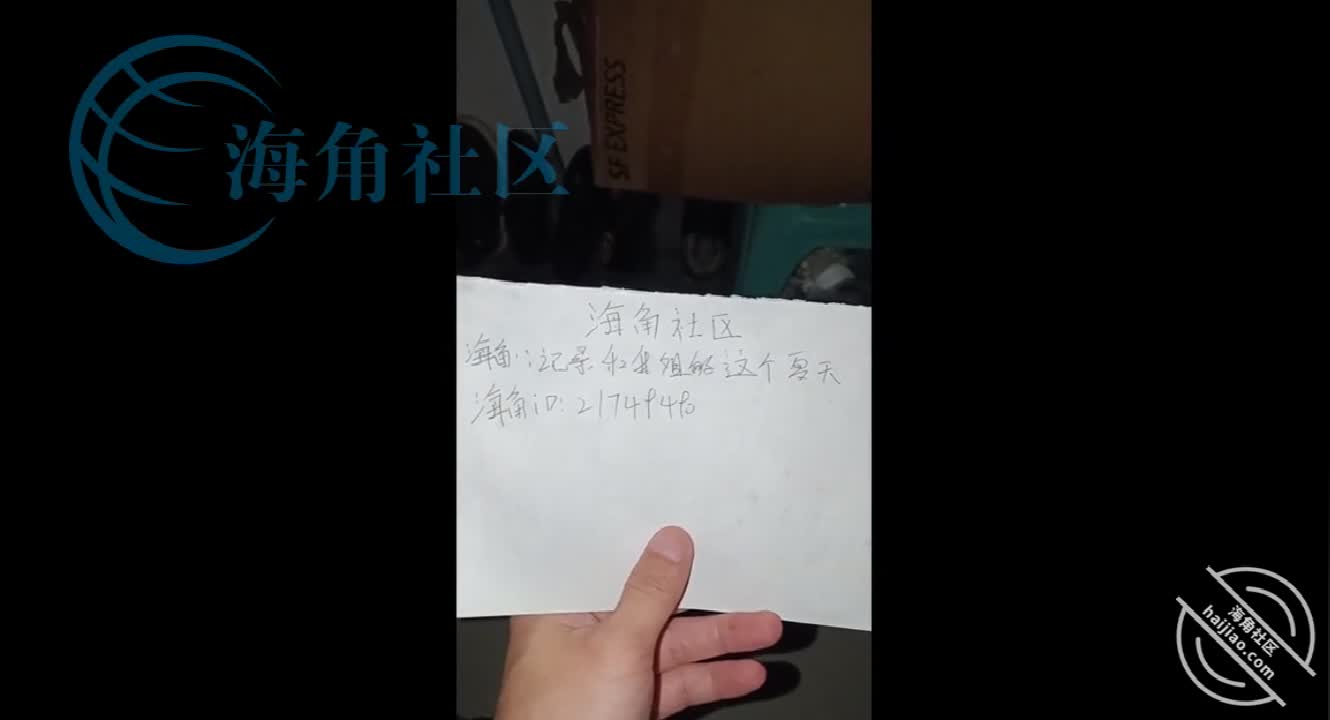 海角社区
SF EXPRESS
海角社区
海角:记录和我姐的这个夏天
海角iD:21749490
海角社区
haijiao.com